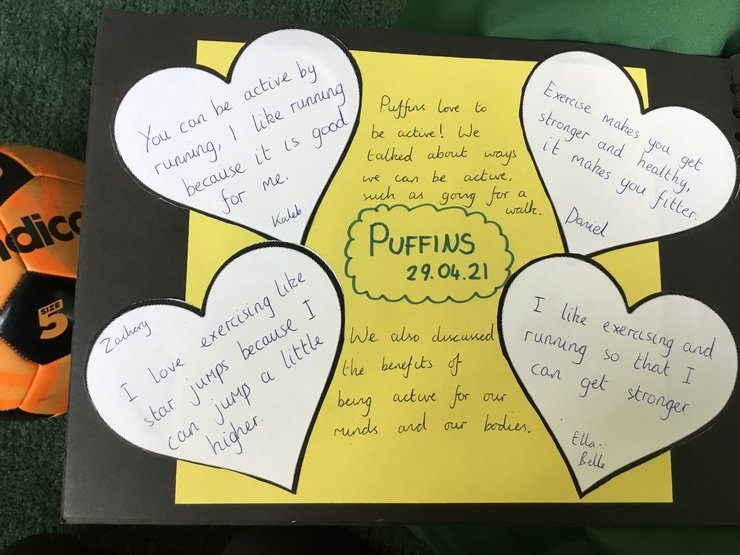 You can be active by
running, I like running
because it is good
for me.
Kaleb
Puffins love to
be active! We
talked about ways
we can be active,
such as going for a
walk.
Exercise makes you get
stronger and healthy,
it makes you fitter.
Daniel
PUFFINS
29.04.21
Zachary
I love exercising like
star jumps because I
can jump a little
higher.
We also discussed
the benefits of
being active for our
minds and our bodies.
I like exercising and
running so that I
can get stronger
Ella-
Belle
dico
SIZE
5